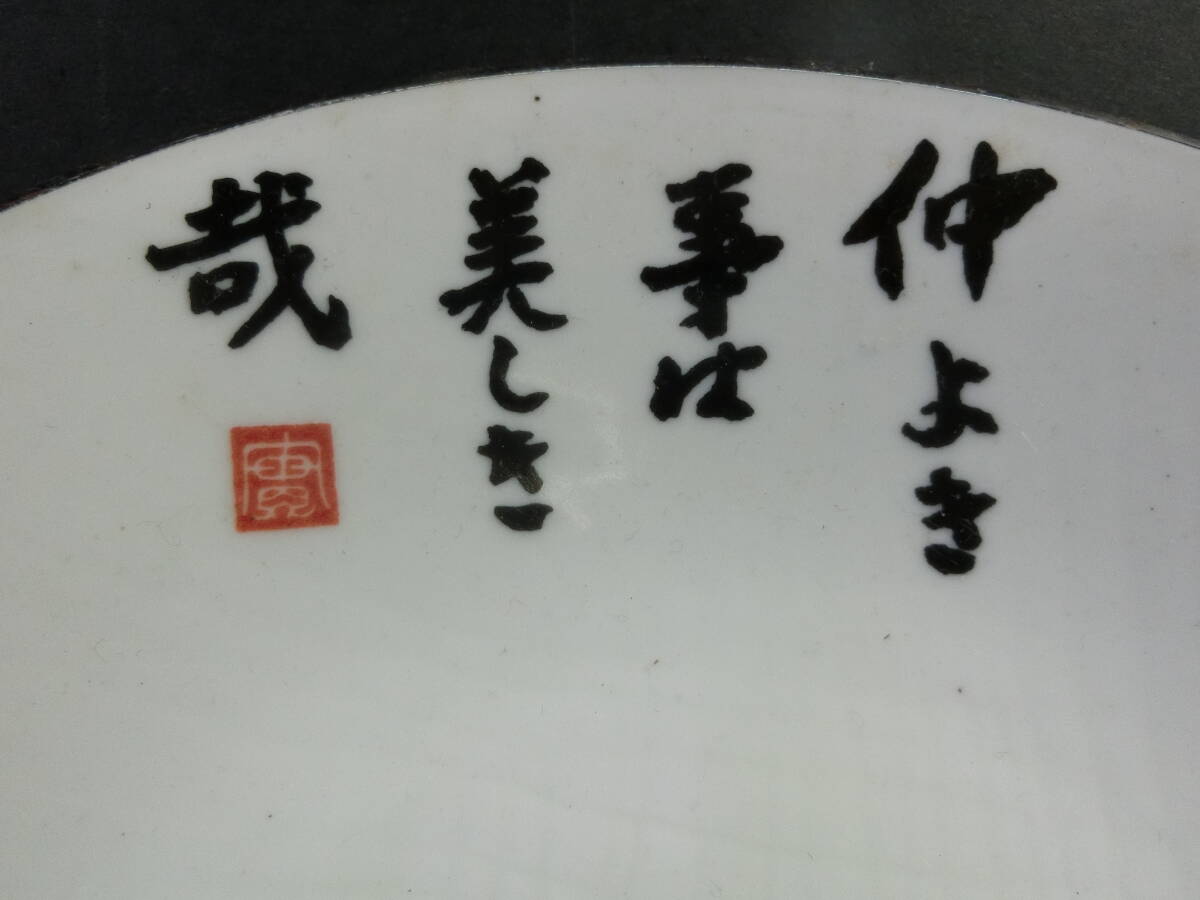 仲よき
事は
美しき
哉
實